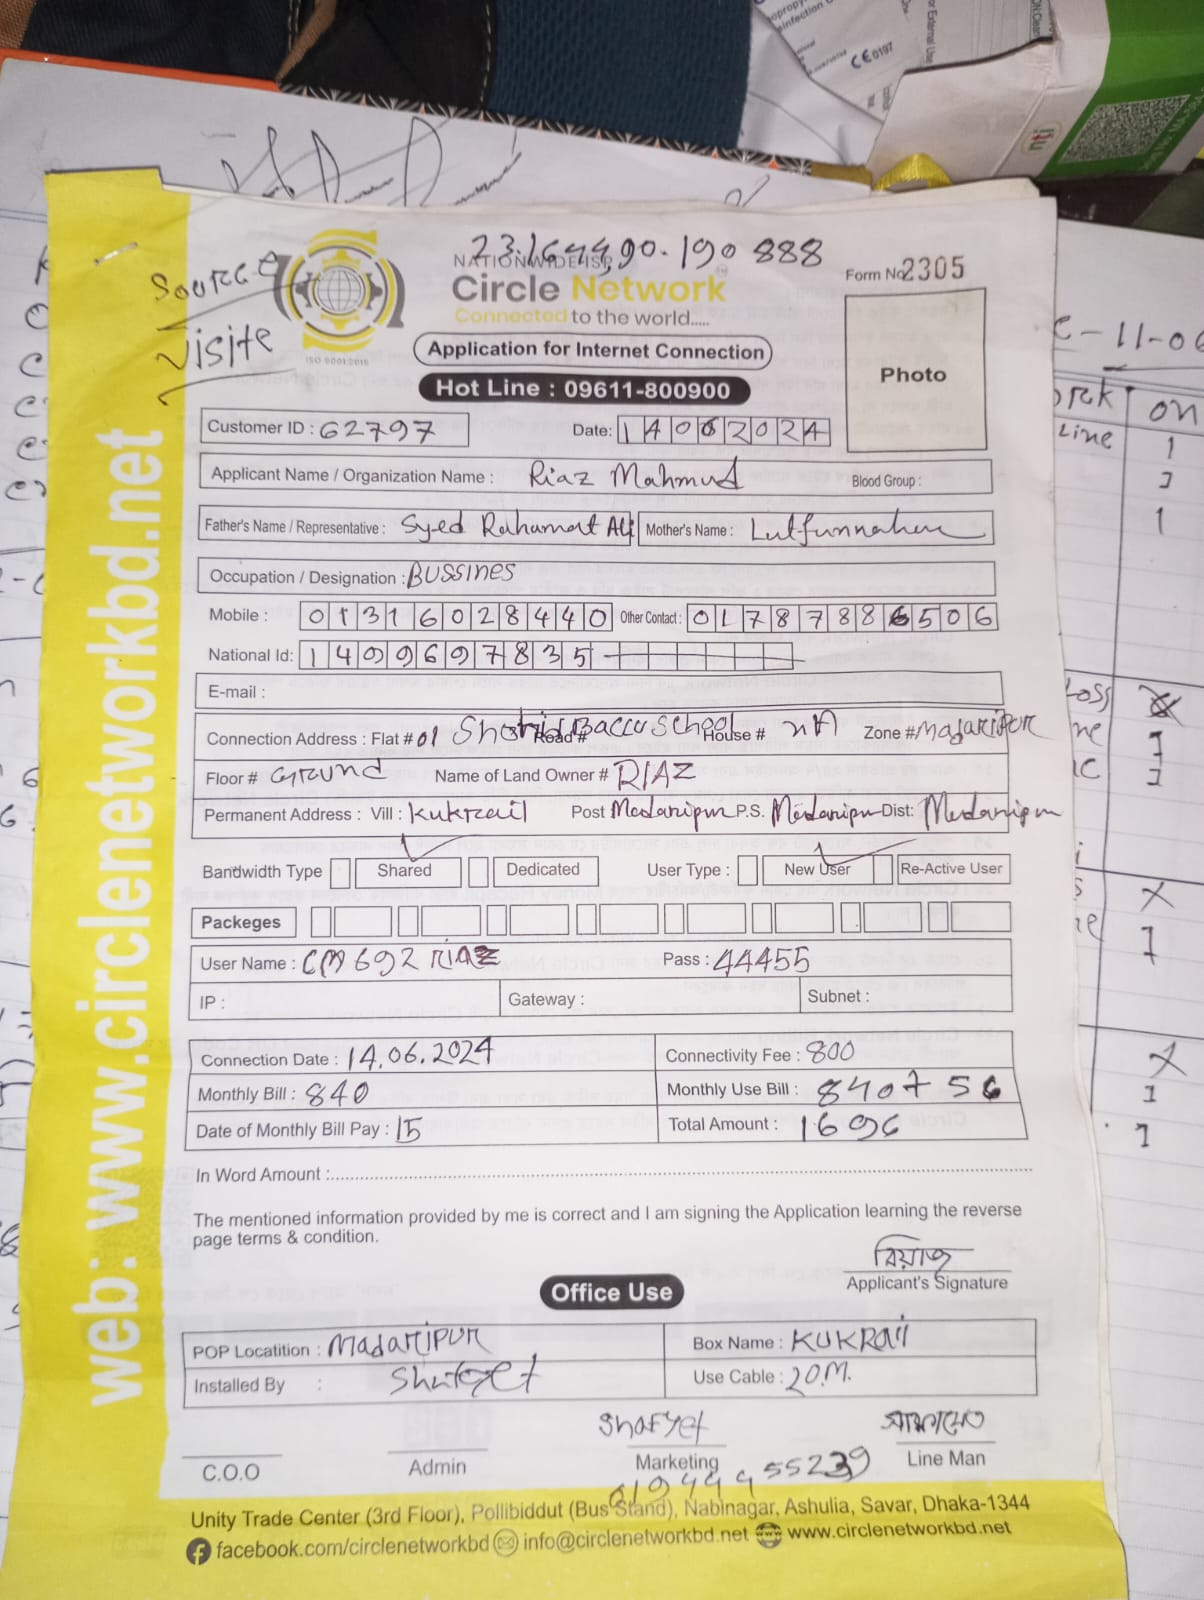 23.164490.190 888
NATIONWIDE ISP
Circle Network
Connected to the world.....
Form No 2305
Source
Visite
ISO 9001:2015
Application for Internet Connection
Hot Line : 09611-800900
Photo
Customer ID : 62797 Date: 14062024
Applicant Name / Organization Name : Riaz Mahmud Blood Group :
Father's Name / Representative : Syed Rahamat Ali Mother's Name : Lutfunnahar
Occupation / Designation : BUSSINES
Mobile : 01316028440 Other Contact : 01787886506
National Id: 1499697835
E-mail :
Connection Address : Flat # 01 Shohid Baccu School Road # House # nA Zone # Madaripur
Floor # Ground Name of Land Owner # RIAZ
Permanent Address : Vill : Kukrail Post Madaripur P.S. Madaripur Dist: Madaripur
Bandwidth Type Shared Dedicated User Type : New User Re-Active User
Packeges
User Name : CM692 RIAZ Pass : 44455
IP : Gateway : Subnet :
Connection Date : 14.06.2024 Connectivity Fee : 800
Monthly Bill : 840 Monthly Use Bill : 840+56
Date of Monthly Bill Pay : 15 Total Amount : 1696
In Word Amount :
The mentioned information provided by me is correct and I am signing the Application learning the reverse
page terms & condition.
রিয়াজ
Applicant's Signature
Office Use
POP Locatition : Madaripur Box Name : KUKRail
Installed By : Use Cable : 20M.
Shafyet
C.O.O Admin Marketing Line Man
01944455239
Unity Trade Center (3rd Floor), Pollibiddut (Bus Stand), Nabinagar, Ashulia, Savar, Dhaka-1344
facebook.com/circlenetworkbd info@circlenetworkbd.net www.circlenetworkbd.net
web: www.circlenetworkbd.net